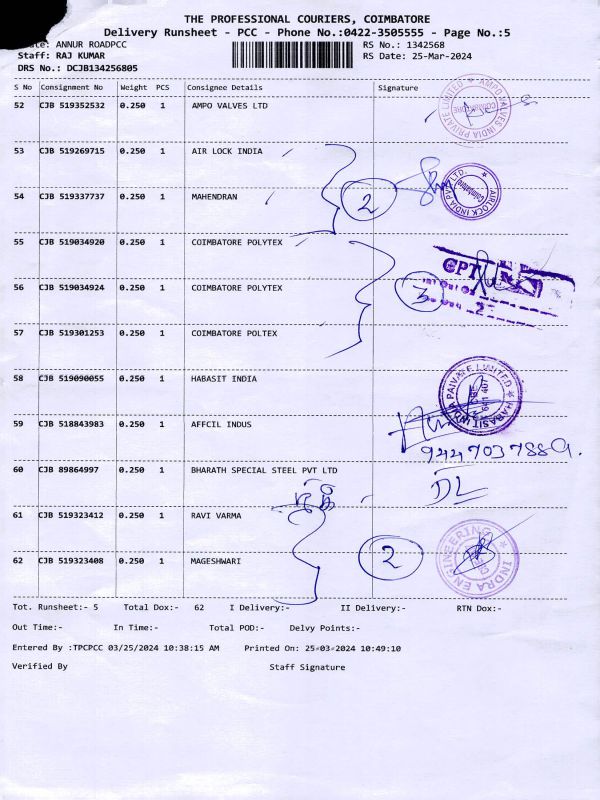 THE PROFESSIONAL COURIERS, COIMBATORE
Delivery Runsheet - PCC - Phone No.:0422-3505555 - Page No.:5
ANNUR ROADPCC RS No.: 1342568
Staff: RAJ KUMAR RS Date: 25-Mar-2024
DRS No.: DCJB134256805
S No Consignment No Weight PCS Consignee Details Signature
52 CJB 519352532 0.250 1 AMPO VALVES LTD
AMPO VALVES INDIA PRIVATE LIMITED COIMBATORE
53 CJB 519269715 0.250 1 AIR LOCK INDIA
54 CJB 519337737 0.250 1 MAHENDRAN 2
AIRLOCK INDIA PVT. LTD. Coimbatore
55 CJB 519034920 0.250 1 COIMBATORE POLYTEX
CPT
56 CJB 519034924 0.250 1 COIMBATORE POLYTEX 3
57 CJB 519301253 0.250 1 COIMBATORE POLTEX
58 CJB 519090055 0.250 1 HABASIT INDIA
HABASIT INDIA PRIVATE LIMITED 641 407
59 CJB 518843983 0.250 1 AFFCIL INDUS
9447037889.
60 CJB 89864997 0.250 1 BHARATH SPECIAL STEEL PVT LTD
DL
61 CJB 519323412 0.250 1 RAVI VARMA
62 CJB 519323408 0.250 1 MAGESHWARI 2
INDRA ENGINEERING
Tot. Runsheet:- 5 Total Dox:- 62 I Delivery:- II Delivery:- RTN Dox:-
Out Time:- In Time:- Total POD:- Delvy Points:-
Entered By :TPCPCC 03/25/2024 10:38:15 AM Printed On: 25-03-2024 10:49:10
Verified By Staff Signature